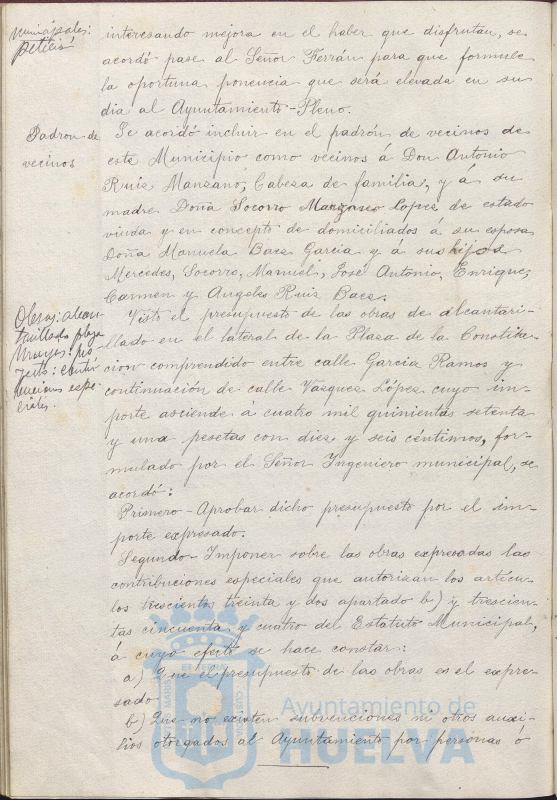 municipales:
petició
interesando mejora en el haber que disfrutan, se
acordó pase al Señor Terrán para que formule
la oportuna ponencia que será elevada en su
dia al Ayuntamiento-Pleno.
Padron de
vecinos
Se acordó incluir en el padrón de vecinos de
este Municipio como vecinos á Don Antonio
Ruiz Manzano, Cabeza de familia, y á su
madre Doña Socorro Manzano Lopez de estado
viuda y en concepto de domiciliados á su esposa
Doña Manuela Baez Garcia y á sus hijos
Mercedes, Socorro, Manuel, José Antonio, Enrique,
Carmen y Angeles Ruiz Baez.
Obras: alcan-
tarillado plaza
Monjas: pro-
yecto: contri-
buciones espe-
ciales.
Visto el presupuesto de las obras de alcantari-
llado en el lateral de la Plaza de la Constitu-
cion comprendido entre calle Garcia Ramos y
continuación de calle Vazquez López cuyo im-
porte asciende á cuatro mil quinientas setenta
y una pesetas con diez y seis céntimos, for-
mulado por el Señor Ingeniero municipal, se
acordó:
Primero - Aprobar dicho presupuesto por el im-
porte expresado.
Segundo - Imponer sobre las obras expresadas las
contribuciones especiales que autorizan los articu-
los trescientos treinta y dos apartado b) y trescien-
tas cincuenta y cuatro del Estatuto Municipal,
á cuyo efecto se hace constar:
a) Que el presupuesto de las obras es el expre-
sado.
b) Que no existen subvenciones ni otros auxi-
lios otorgados al Ayuntamiento por personas ó
Ayuntamiento de
HUELVA